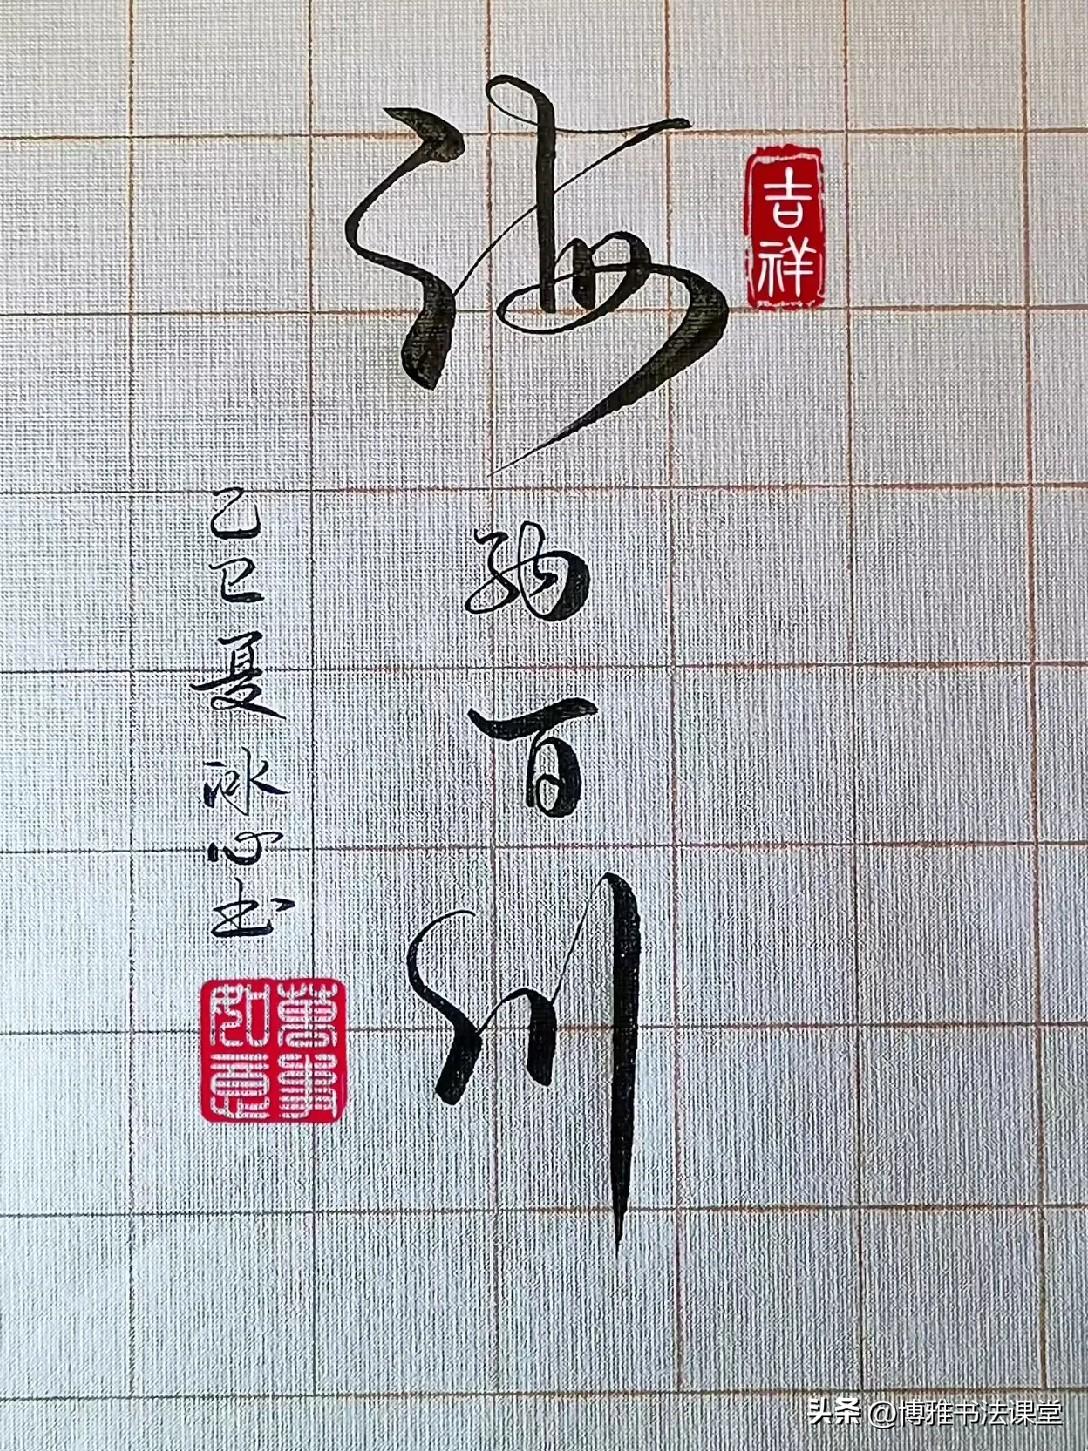 吉祥
海纳百川
乙巳夏冰心书
萬事如意
头条 @博雅书法课堂